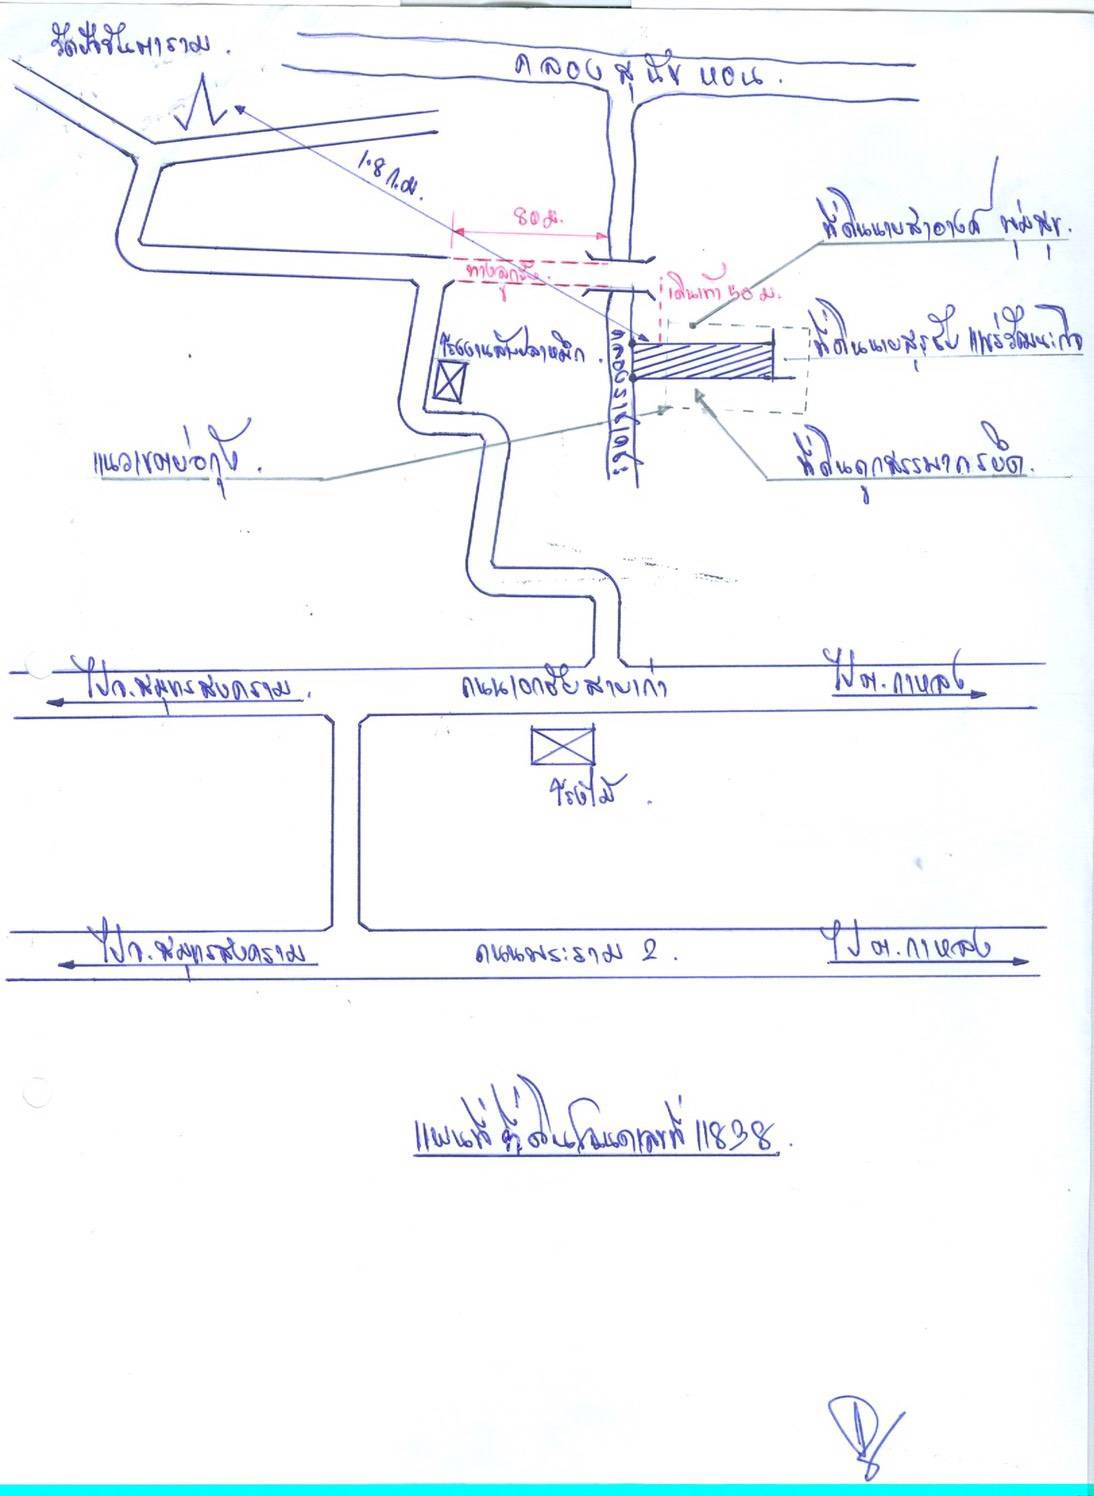 วัดปัจจันตาราม.
คลองสุนัขหอน.
1.8 ก.ม.
80 ม.
ที่ดินนายสำอางค์ พุ่มสุข.
ทางลูกรัง.
เดินเท้า 50 ม.
โรงงานสับปลาหมึก.
ที่ดินนายสุรชัย
แนวเขตบ่อกุ้ง.
ที่ดินถูกสรรพากรยึด.
ไป จ.สมุทรสงคราม.
ถนนเอกชัยสายเก่า
ไป ต.กาหลง
โรงไม้.
ไป จ.สมุทรสงคราม
ถนนพระราม 2.
ไป ต.กาหลง
แผนที่ ที่ดินโฉนดเลขที่ 11838.